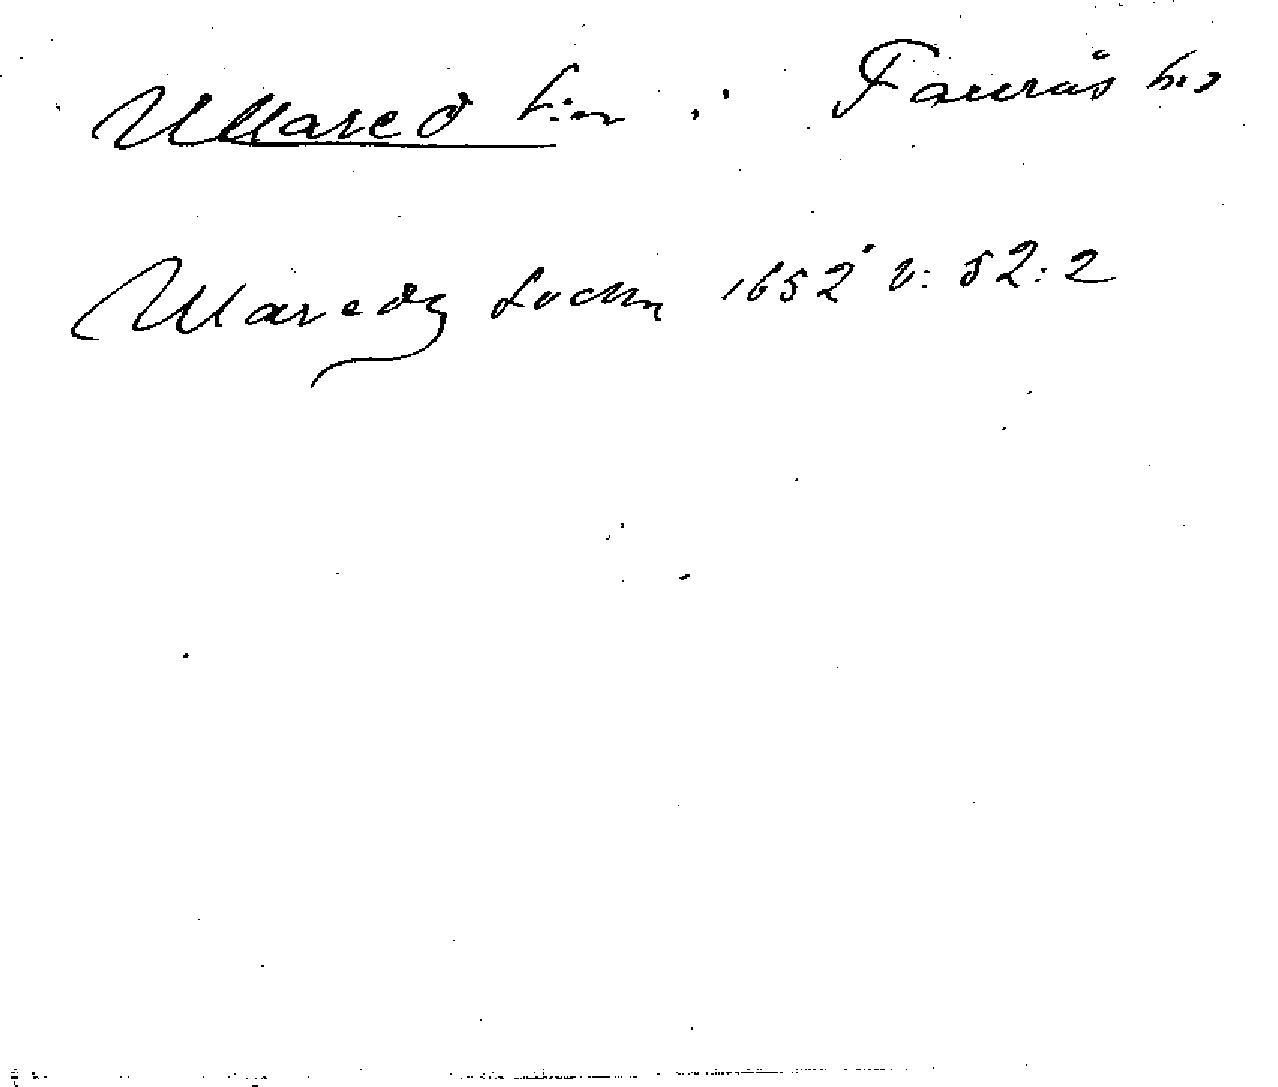 Ullared s:n i Faurås hd
Ullaredz Sochn 1652 v: 52:2